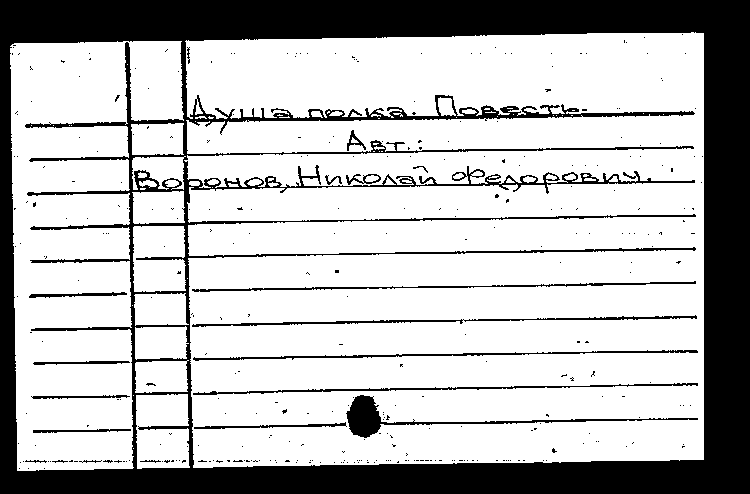 Душа полка. Повесть.
Авт.:
Воронов, Николай Федорович.